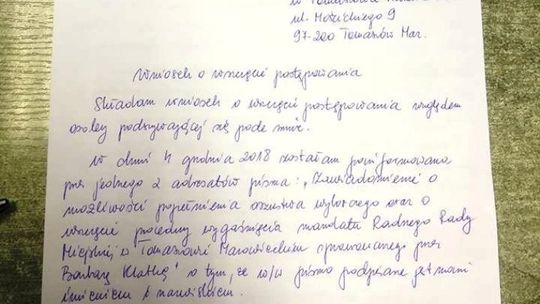 w Tomaszowie
ul. Mościckiego 9
97-200 Tomaszów Maz.
Wniosek o wszczęcie postępowania
Składam wniosek o wszczęcie postępowania względem
osoby podszywającej się pode mnie.
W dniu 4 grudnia 2018 zostałam poinformowana
przez jednego z adresatów pisma: "Zawiadomienie o
możliwości popełnienia oszustwa wyborczego oraz o
wszczęcie procedury wygaśnięcia mandatu Radnego Rady
Miejskiej w Tomaszowie Mazowieckim sprawowanego przez
Barbarę Klatkę" o tym, że w/w pismo podpisane jest moim
imieniem i nazwiskiem.